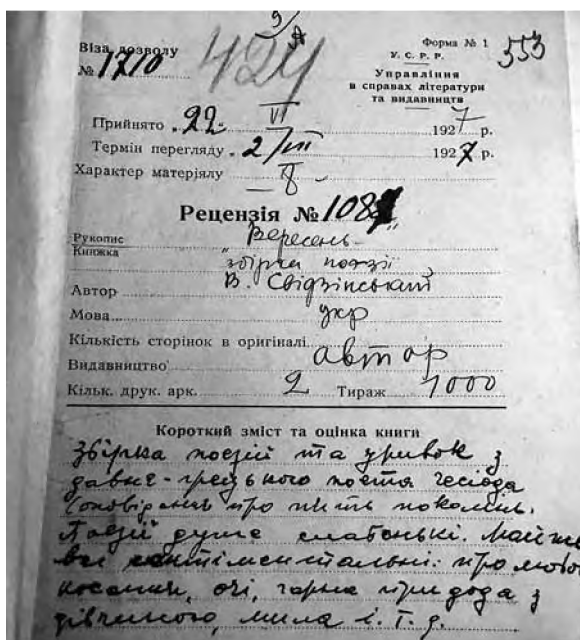 9
А
Форма № 1
553
424
Віза дозволу
У. С. Р. Р.
№ 1710
Управління
в справах літератури
та видавництв
Прийнято 22 VI 1927 р.
Термін перегляду 2/VII 1927 р.
Характер матеріялу
Рецензія № 1087
Рукопис Вересень
Книжка
збірка поезії
Автор В. Свідзінський
Мова укр
Кількість сторінок в оригіналі
Видавництво автор
Кільк. друк. арк. 2 Тираж 1000
Короткий зміст та оцінка книги
Збірка поезій та уривок з
давнє-грецького поета Гесіода
(оповідань про пять поколінь.
Поезії дуже слабенькі. Майже
всі сентіментальні: про любов
косинки, очі, гарна природа з
дівчиною, мила і. т. д.